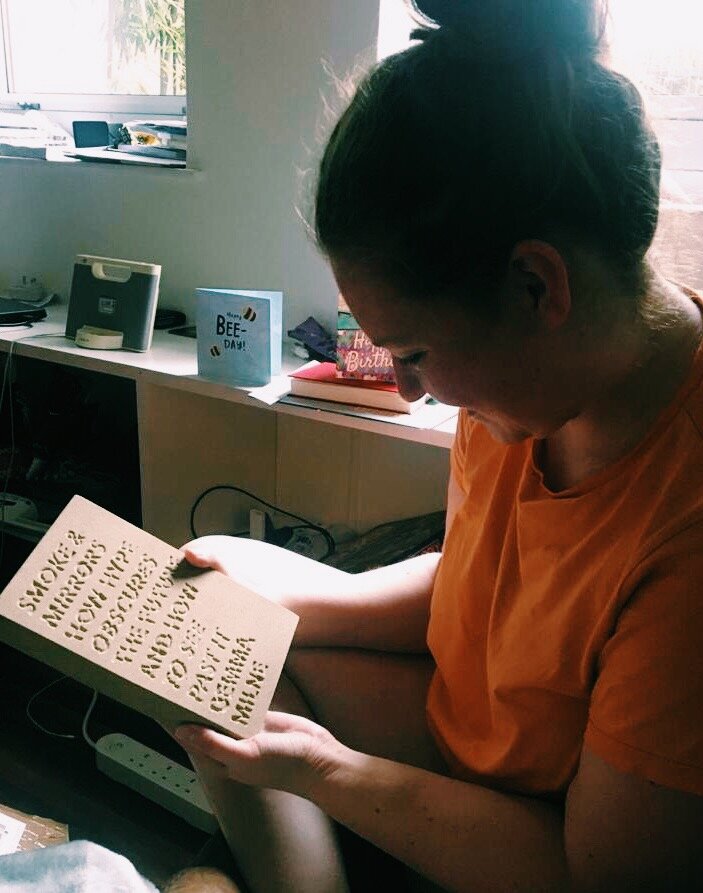 Happy
BEE-
DAY!
SMOKE &
MIRRORS
HOW HYPE
OBSCURES
THE FUTURE
AND HOW
TO SEE
PAST IT
GEMMA
MILNE